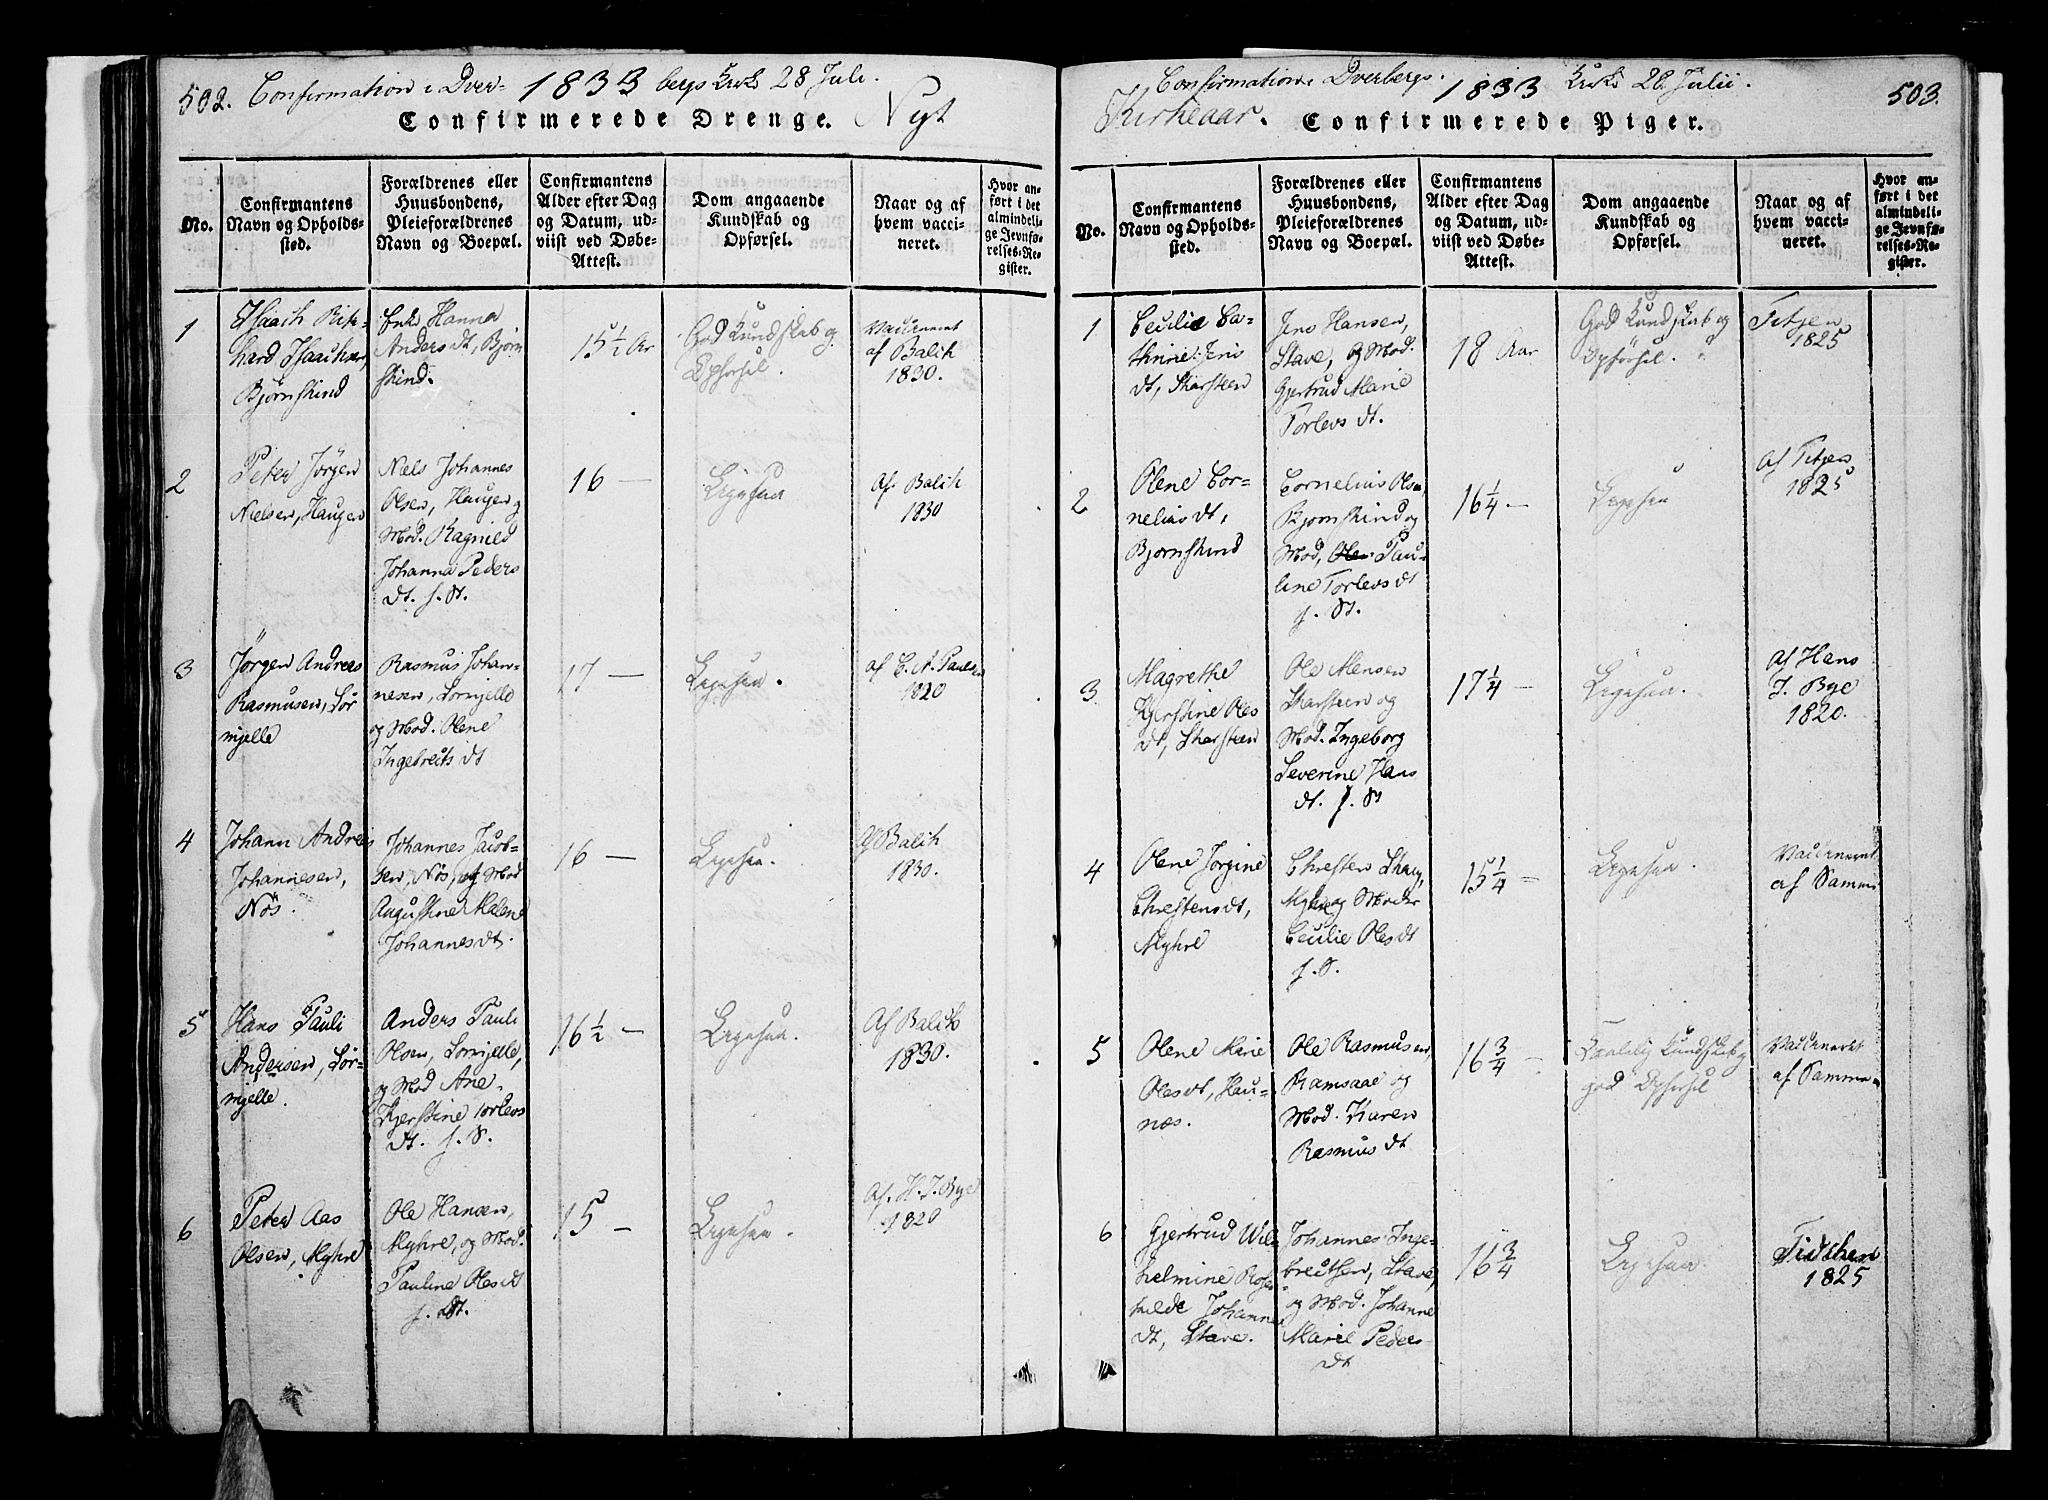 502. Confirmation i Dver- 1833 bergs Kirke 28 Juli.
Confirmerede Drenge. Nyt
No.
Confirmantens
Navn og Opholds-
sted.
Forældrenes eller
Huusbondens,
Pleieforældrenes
Navn og Boepæl.
Confirmantens
Alder efter Dag
og Datum, ud-
viist ved Døbe-
Attest.
Dom angaaende
Kundskab og
Opførsel.
Naar og af
hvem vacci-
neret.
Hvor an-
ført i det
almindeli-
ge Jevnfø-
relses-Re-
gister.
1
Isaach Rik-
hard Isachsen,
Bjørnskind
Enke Hanna
Anders dt, Bjørn
skind.
15 1/2 Ar
God Kundskab og
Opførsel.
Vaccineret
af Balch
1830.
2
Peter Jörgen
Nielsen, Haugen
Niels Johannes
Olsen, Haugen og
Mod. Ragnild
Johanna Peders
dt. f. St.
16 —
Ligesaa
Af Balch
1830
3
Jörgen Andreas
Rasmusen, Sör
mjelle
Rasmus Johan-
nesen, Sörmjelle
og Mod. Olene
Ingebreits dt
17 —
Ligesaa.
af C. A. Paulsen
1820
4
Johann Andreas
Johannesen,
Nös.
Johannes Jacob-
sen, Nös, og Mod
Augustine Malene
Johannes dt.
16 —
Ligesaa.
Af Balch
1830.
5
Hans Pauli
Andersen, Sör-
mjelle.
Anders Pauli
Olsen, Sörmjelle,
og Mod Ane
Kjerstine Torlevs
dt. f. S.
16 1/2 —
Ligesaa.
Af Balch
1830.
6
Peter Aas
Olsen, Myhre
Ole Hansen,
Myhre, og Mod.
Pauline Oles dt
f. St.
15 —
Ligesaa.
Af. H. J. Bye
1820
Confirmation i Dverbergs 1833 Kirke 28 Julii. 503.
Kirkeaar. Confirmerede Piger.
No.
Confirmantens
Navn og Opholds-
sted.
Forældrenes eller
Huusbondens,
Pleieforældrenes
Navn og Boepæl.
Confirmantens
Alder efter Dag
og Datum, ud-
viist ved Døbe-
Attest.
Dom angaaende
Kundskab og
Opførsel.
Naar og af
hvem vacci-
neret.
Hvor an-
ført i det
almindeli-
ge Jevnfø-
relses-Re-
gister.
1
Cecilie Ca-
thrine Jens
dt, Skarsteen
Jens Hansen,
Stave, og Mod.
Gjertrud Marie
Torlevs dt.
18 Aar
God Kundskab og
Opförsel.
Titjen
1825
2
Olene Cor-
nelius dt,
Bjornskind
Cornelius Olsen
Bjornskind og
Mod, Olen Pau-
line Torlevs dt
f. St.
16 1/4 —
Ligesaa
Af Titjen
1825
3
Magrethe
Kjerstine Oles
dt, Skarsteen
Ole Mensen
Skarsteen og
Mod. Ingeborg
Severine Hans
dt. f. St
17 1/4 —
Ligesaa.
Af Hans
J. Bye
1820.
4
Olene Jörgine
Chrestens dt,
Myhre
Chresten
Myhre og Moder
Cecilie Oles dt
f. S.
15 1/4 —
Ligesaa.
Vaccineret
af Samme
5
Olene Marie
Oles dt, Hau-
næs.
Ole Rasmusen,
Ramsaae og
Mod. Karen
Rasmus dt
16 3/4 —
Taalelig Kundskab og
god Opførsel
Vaccineret
af Samme
6
Gjertrud Wil-
helmine
Johannes
dt, Stave.
Johannes Inge-
breitsen, Stave,
og Mod. Johanne
Marie Peders
dt
16 3/4
Ligesaa.
Tidchen
1825